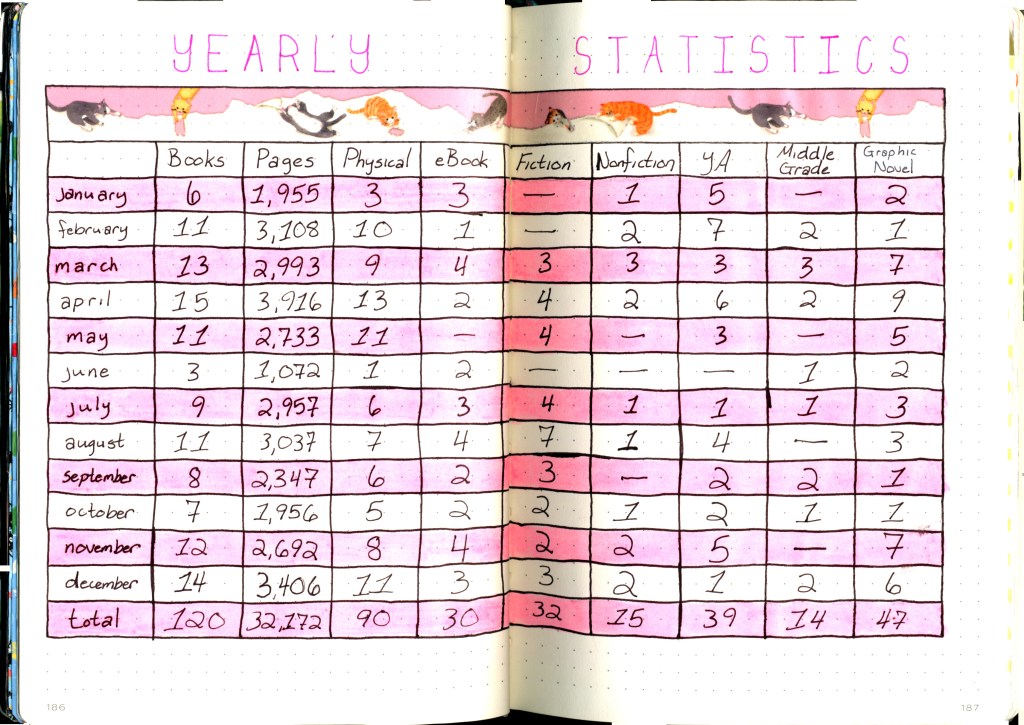 YEARLY STATISTICS
Books Pages Physical eBook Fiction Nonfiction YA Middle Grade Graphic Novel
january 6 1,955 3 3 — 1 5 — 2
february 11 3,108 10 1 — 2 7 2 1
march 13 2,993 9 4 3 3 3 3 7
april 15 3,916 13 2 4 2 6 2 9
may 11 2,733 11 — 4 — 3 — 5
june 3 1,072 1 2 — — — 1 2
july 9 2,957 6 3 4 1 1 1 3
august 11 3,037 7 4 7 1 4 — 3
september 8 2,347 6 2 3 — 2 2 1
october 7 1,956 5 2 2 1 2 1 1
november 12 2,692 8 4 2 2 5 — 7
december 14 3,406 11 3 3 2 1 2 6
total 120 32,172 90 30 32 15 39 14 47
186 187